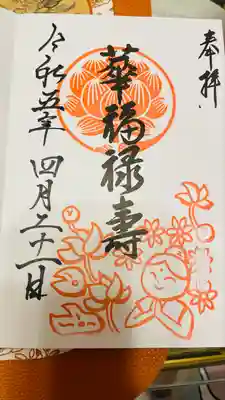 奉拝
華福禄寿
令和五年 四月二十一日